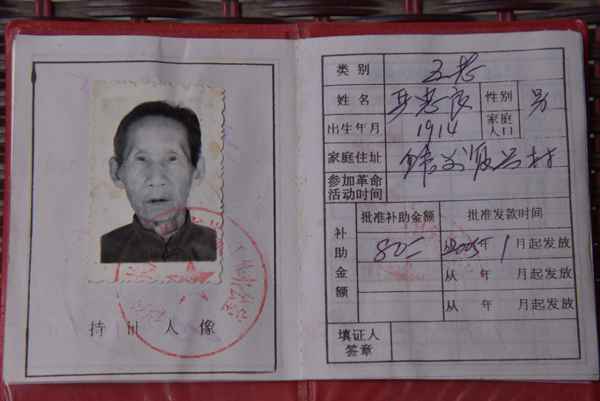 持证人像
类别 五老
姓名 性别 男
出生年月 1914 家庭人口
家庭住址
参加革命活动时间
补助金额
批准补助金额 批准发款时间
80 从2005年1月起发放
从 年 月起发放
从 年 月起发放
填证人签章